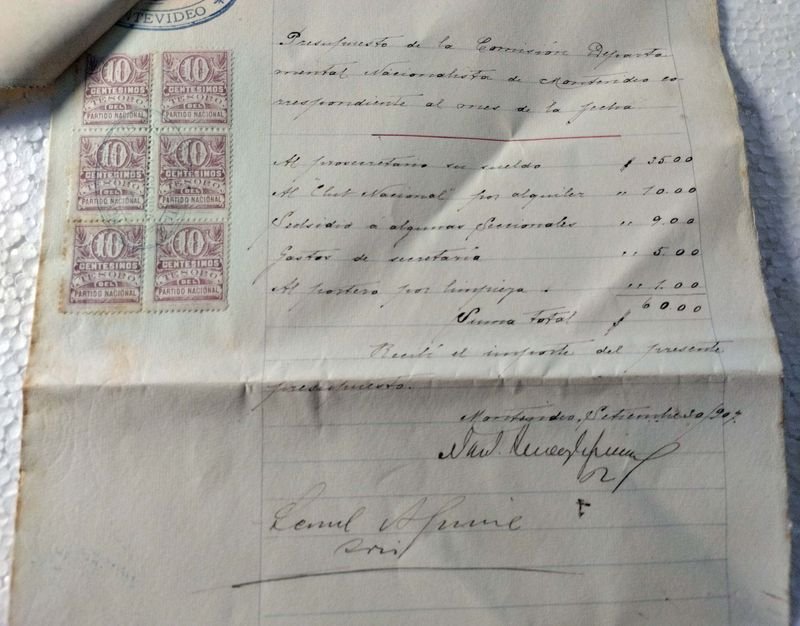 MONTEVIDEO
10
CENTESIMOS
TESORO
DEL
PARTIDO NACIONAL
10
CENTESIMOS
TESORO
DEL
PARTIDO NACIONAL
10
CENTESIMOS
TESORO
DEL
PARTIDO NACIONAL
10
CENTESIMOS
TESORO
DEL
PARTIDO NACIONAL
10
CENTESIMOS
TESORO
DEL
PARTIDO NACIONAL
10
CENTESIMOS
TESORO
DEL
PARTIDO NACIONAL
Presupuesto de la Comisión Departa
mental Nacionalista de Montevideo co
rrespondiente al mes de la fecha
Al prosecretario su sueldo $ 35.00
Al "Club Nacional" por alquiler " 10.00
Subsidio á algunas Seccionales " 9.00
Gastos de secretaría " 5.00
Al portero por limpieza " 1.00
Suma total $ 60.00
Recibí el importe del presente
presupuesto.
Montevideo, Setiembre 30/907